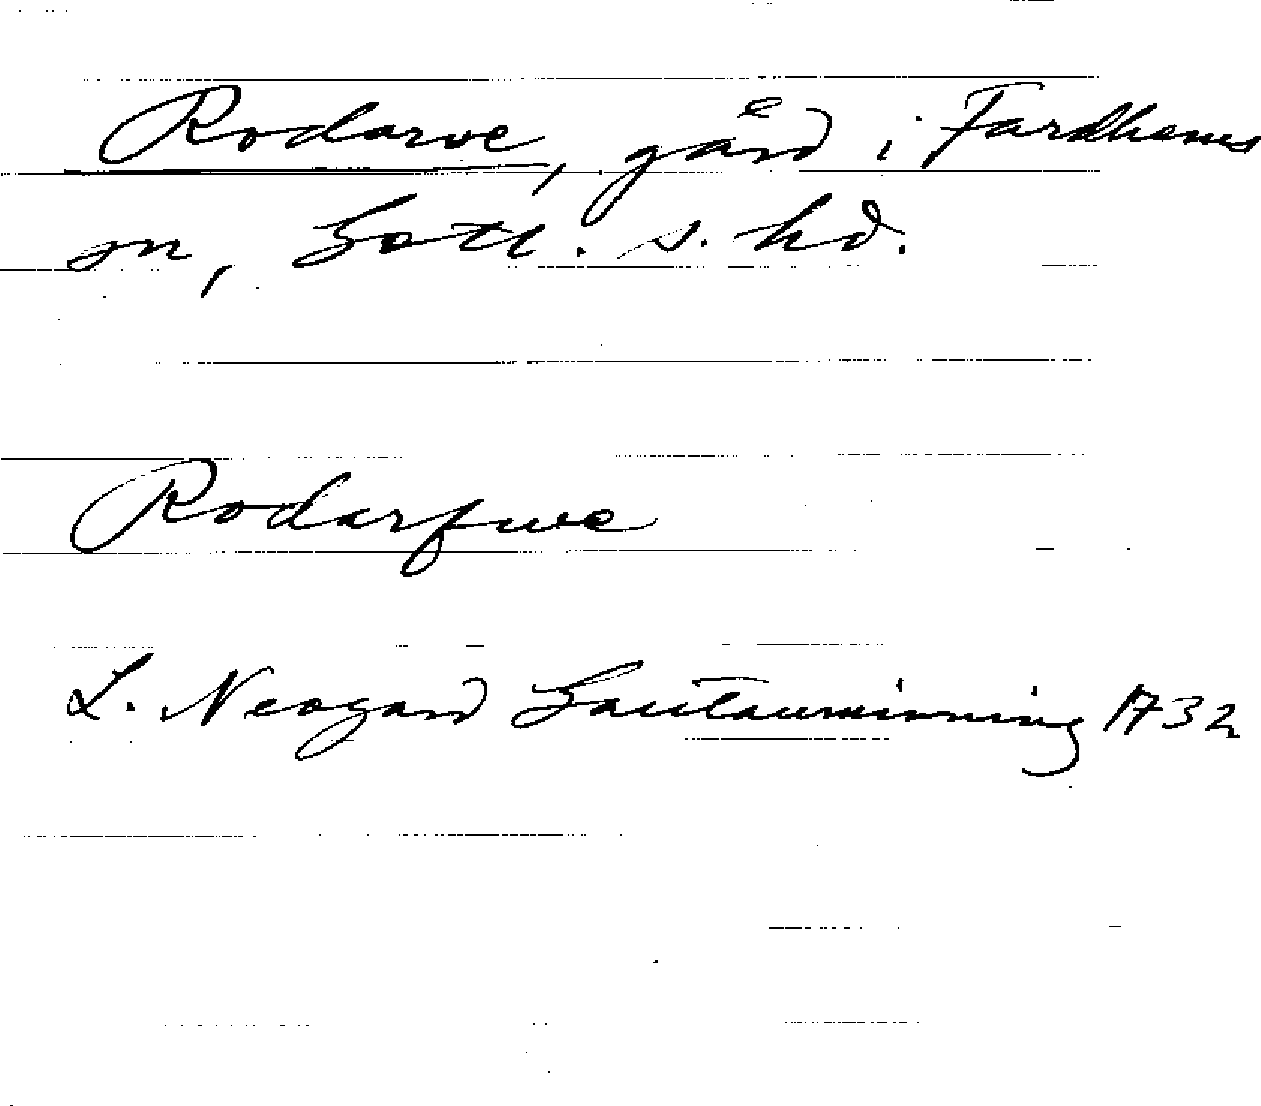 Rodarve, gård i Fardhems
sn, Gotl. s. hd.
Rodarfwe
L. Neogard Gautauminning 1732